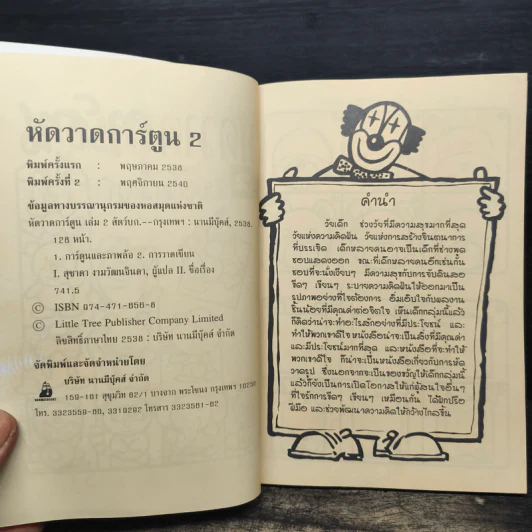 หัดวาดการ์ตูน 2
พิมพ์ครั้งแรก : พฤษภาคม 2538
พิมพ์ครั้งที่ 2 : พฤศจิกายน 2540
ข้อมูลทางบรรณานุกรมของหอสมุดแห่งชาติ
หัดวาดการ์ตูน เล่ม 2 สัตว์บก.--กรุงเทพฯ : นานมีบุ๊คส์, 2538.
128 หน้า.
1. การ์ตูนและภาพล้อ 2. การวาดเขียน
I. สุชาดา งามวัฒนจินดา, ผู้แปล II. ชื่อเรื่อง
741.5
© ISBN 974-471-856-6
© Little Tree Publisher Company Limited
ลิขสิทธิ์ภาษาไทย 2538 : บริษัท นานมีบุ๊คส์ จำกัด
จัดพิมพ์และจัดจำหน่ายโดย
บริษัท นานมีบุ๊คส์ จำกัด
159-161 สุขุมวิท 62/1 บางจาก พระโขนง กรุงเทพฯ
โทร. 3323559-60, 3319292 โทรสาร 3323561-62
คำนำ
วัยเด็ก ช่วงวัยที่มีความสุขมากที่สุด
วัยแห่งความคิดฝัน วัยแห่งการสร้างจินตนาการ
ที่บรรเจิด เด็กหลายคนอาจเป็นเด็กที่ช่างพูด
ชอบแสดงออก ขณะที่เด็กหลายคนอีกเช่นกัน
ชอบที่จะนั่งเงียบๆ มีความสุขกับการจับดินสอ
ขีดๆ เขียนๆ ระบายความคิดฝันให้ออกมาเป็น
รูปภาพอย่างที่ใจต้องการ อิ่มเอิบใจกับผลงาน
ชิ้นน้อยที่มีคุณค่าต่อจิตใจ เห็นเด็กกลุ่มนี้แล้ว
ก็คิดว่าน่าจะทำอะไรสักอย่างที่มีประโยชน์ และ
ทำให้พวกเขาดีใจ หนังสือน่าจะเป็นสิ่งที่มีคุณค่า
และมีประโยชน์มากที่สุด และหนังสือที่จะทำให้
พวกเขาดีใจ ก็น่าจะเป็นหนังสือเกี่ยวกับการหัด
วาดรูป ซึ่งนอกจากจะเป็นของขวัญให้เด็กกลุ่มนี้
แล้วก็ยังเป็นการเปิดโอกาสให้แก่ผู้สนใจอื่นๆ
ที่ใจรักการขีดๆ เขียนๆ เหมือนกัน ได้ฝึกปรือ
ฝีมือ และช่วยพัฒนาความคิดให้กว้างไกลขึ้น